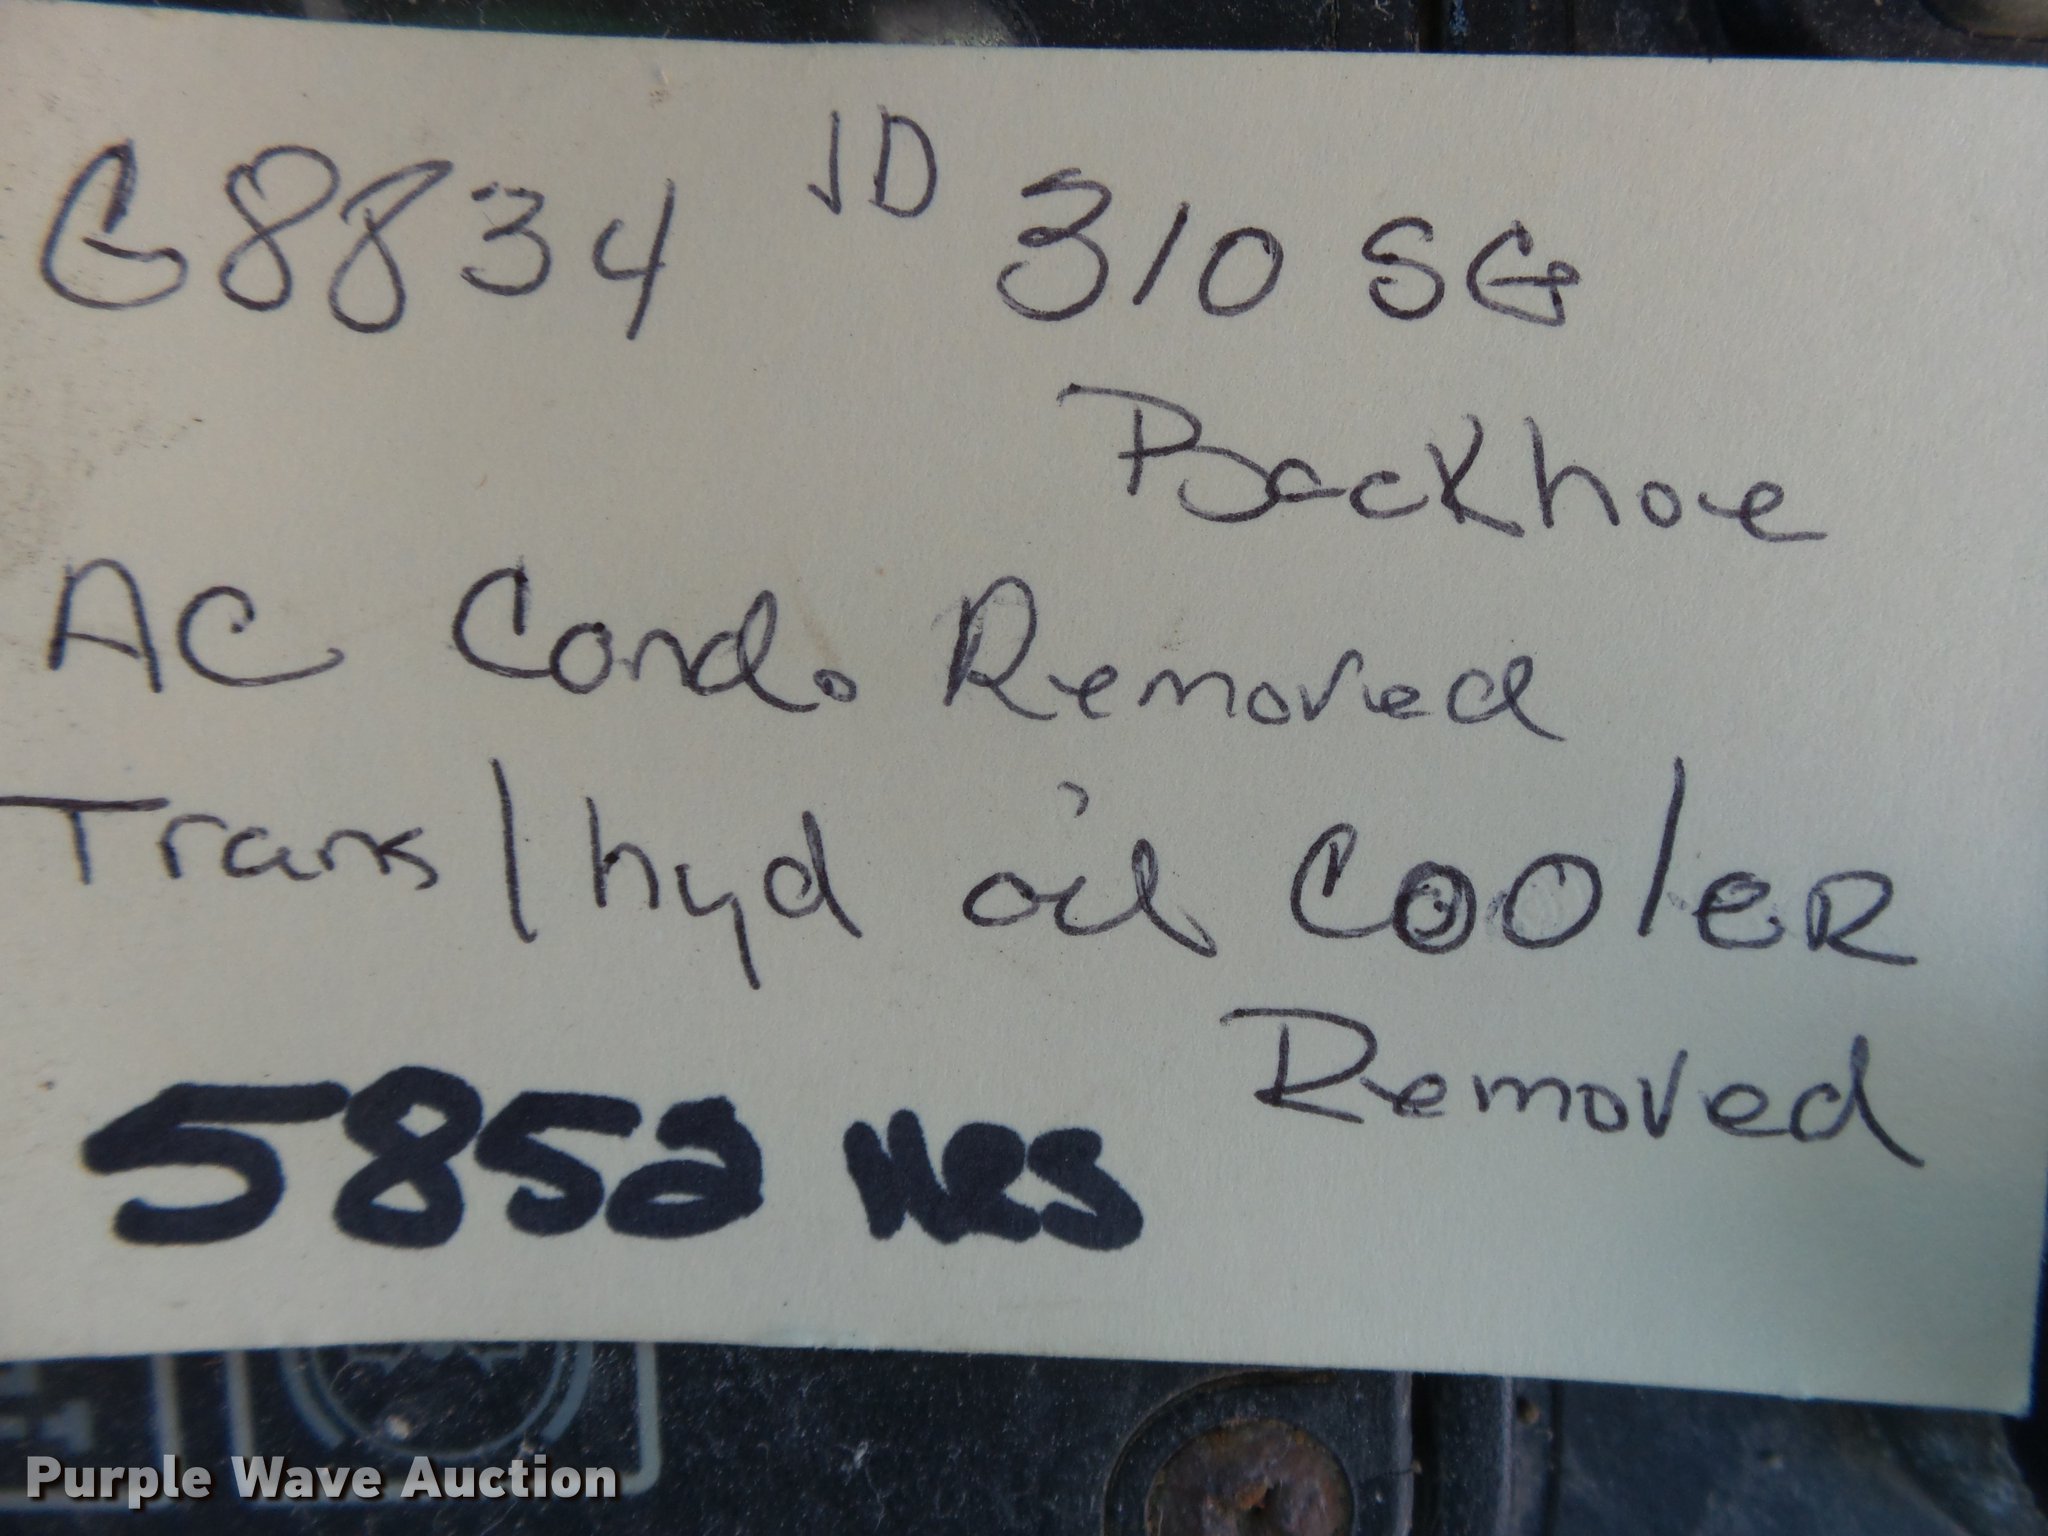 G8834 JD 310 SG
Backhoe
AC Cond. Removed
Trans/hyd oil cooleR
Removed
5852 HRS
Purple Wave Auction